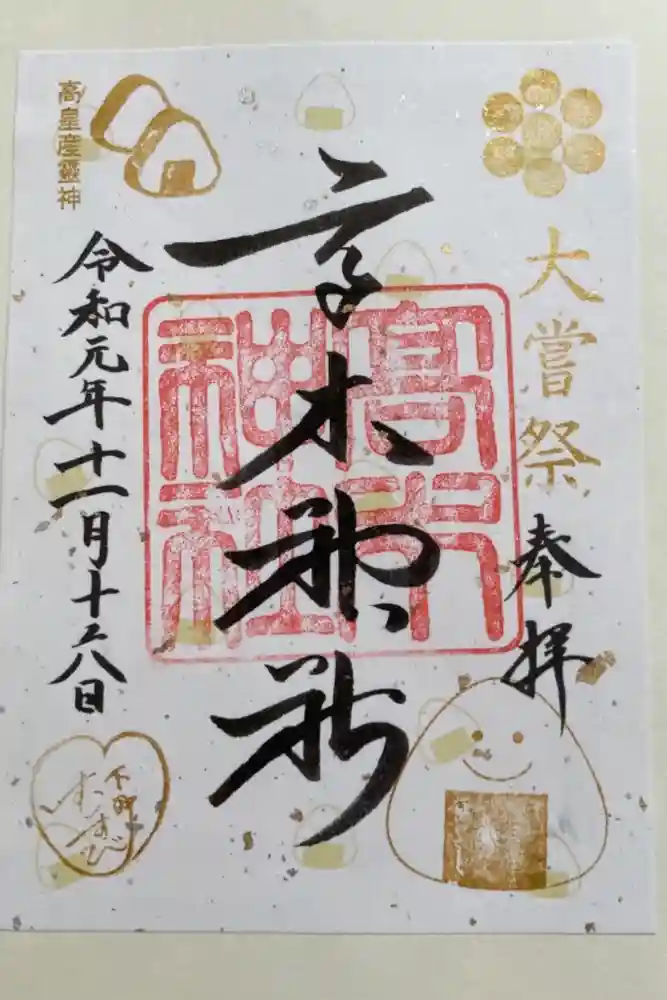 大嘗祭
奉拝
高木神社
高木
神社
高皇産靈神
令和元年十一月十六日
下町
むすび